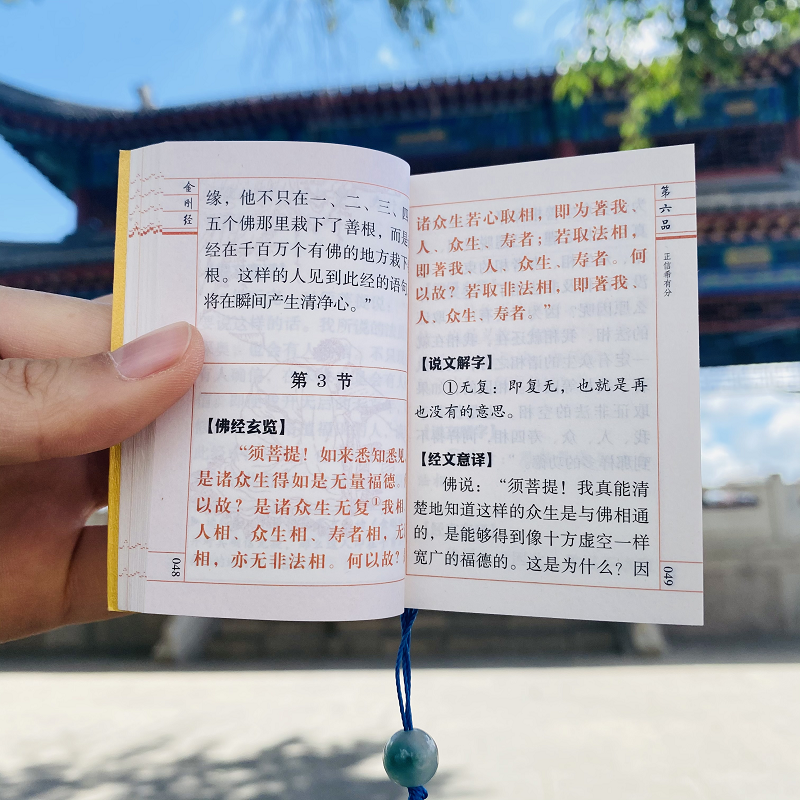 金刚经
缘，他不只在一、二、三、四
五个佛那里栽下了善根，而是
经在千百万个有佛的地方栽下
根。这样的人见到此经的语句
将在瞬间产生清净心。”
第 3 节
【佛经玄览】
“须菩提！如来悉知悉见
是诸众生得如是无量福德。
以故？是诸众生无复①我相
人相、众生相、寿者相，无
相，亦无非法相。何以故？
048
第六品
正信希有分
诸众生若心取相，即为著我、
人、众生、寿者；若取法相，
即著我、人、众生、寿者。何
以故？若取非法相，即著我、
人、众生、寿者。”
【说文解字】
①无复：即复无，也就是再
也没有的意思。
【经文意译】
佛说：“须菩提！我真能清
楚地知道这样的众生是与佛相通
的，是能够得到像十方虚空一样
宽广的福德的。这是为什么？因
049